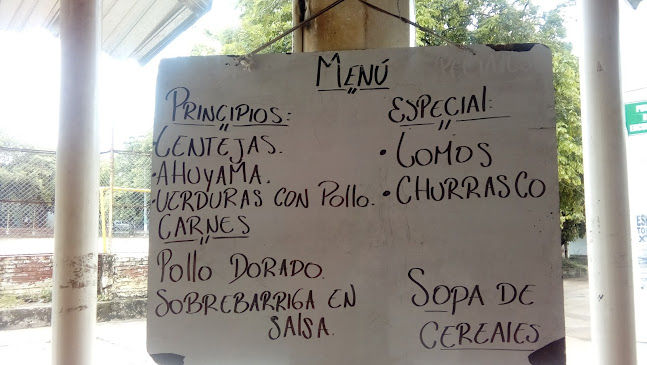 MENÚ
PRINCIPIOS:
LENTEJAS.
• AHUYAMA.
• VERDURAS CON POLLO.
CARNES
POLLO DORADO.
SOBREBARRIGA EN
SALSA.
ESPECIAL:
• LOMOS
• CHURRASCO
SOPA DE
CEREALES